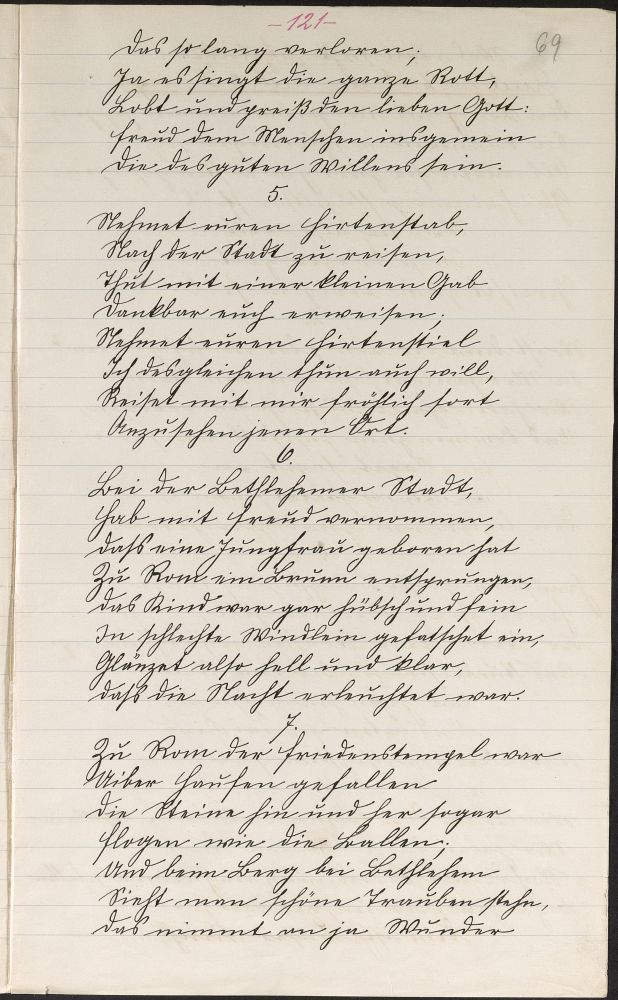 -121-
69
Das so lang verloren;
Ja es singt die ganze Rott,
Lobt und preißt den lieben Gott:
Freud dem Menschen insgemein
Die des guten Willens sein.
5.
Nehmet euren Hirtenstab,
Nach der Stadt zu reisen,
Thut mit einer kleinen Gab
Dankbar euch erweisen;
Nehmet euren Hirtenstiel
Ich desgleichen thun auch will,
Reiset mit mir fröhlich fort
Anzusehen jenen Ort.
6.
Bei der Bethlehemer Stadt,
Hab mit Freud vernommen,
Dass eine Jungfrau geboren hat
Zu Rom ein Brunn entsprungen,
Das Kind war gar hübsch und fein
In schlechte Windlein gefatschet ein,
Glänzet also hell und klar,
Dass die Nacht erleuchtet war.
7.
Zu Rom der Friedenstempel war
Uiber Haufen gefallen
Die Steine hin und her sogar
Flogen wie die Ballen;
Und beim Berg bei Bethlehem
Sieht man schöne Trauben stehn,
Das nimmt an ja Wunder